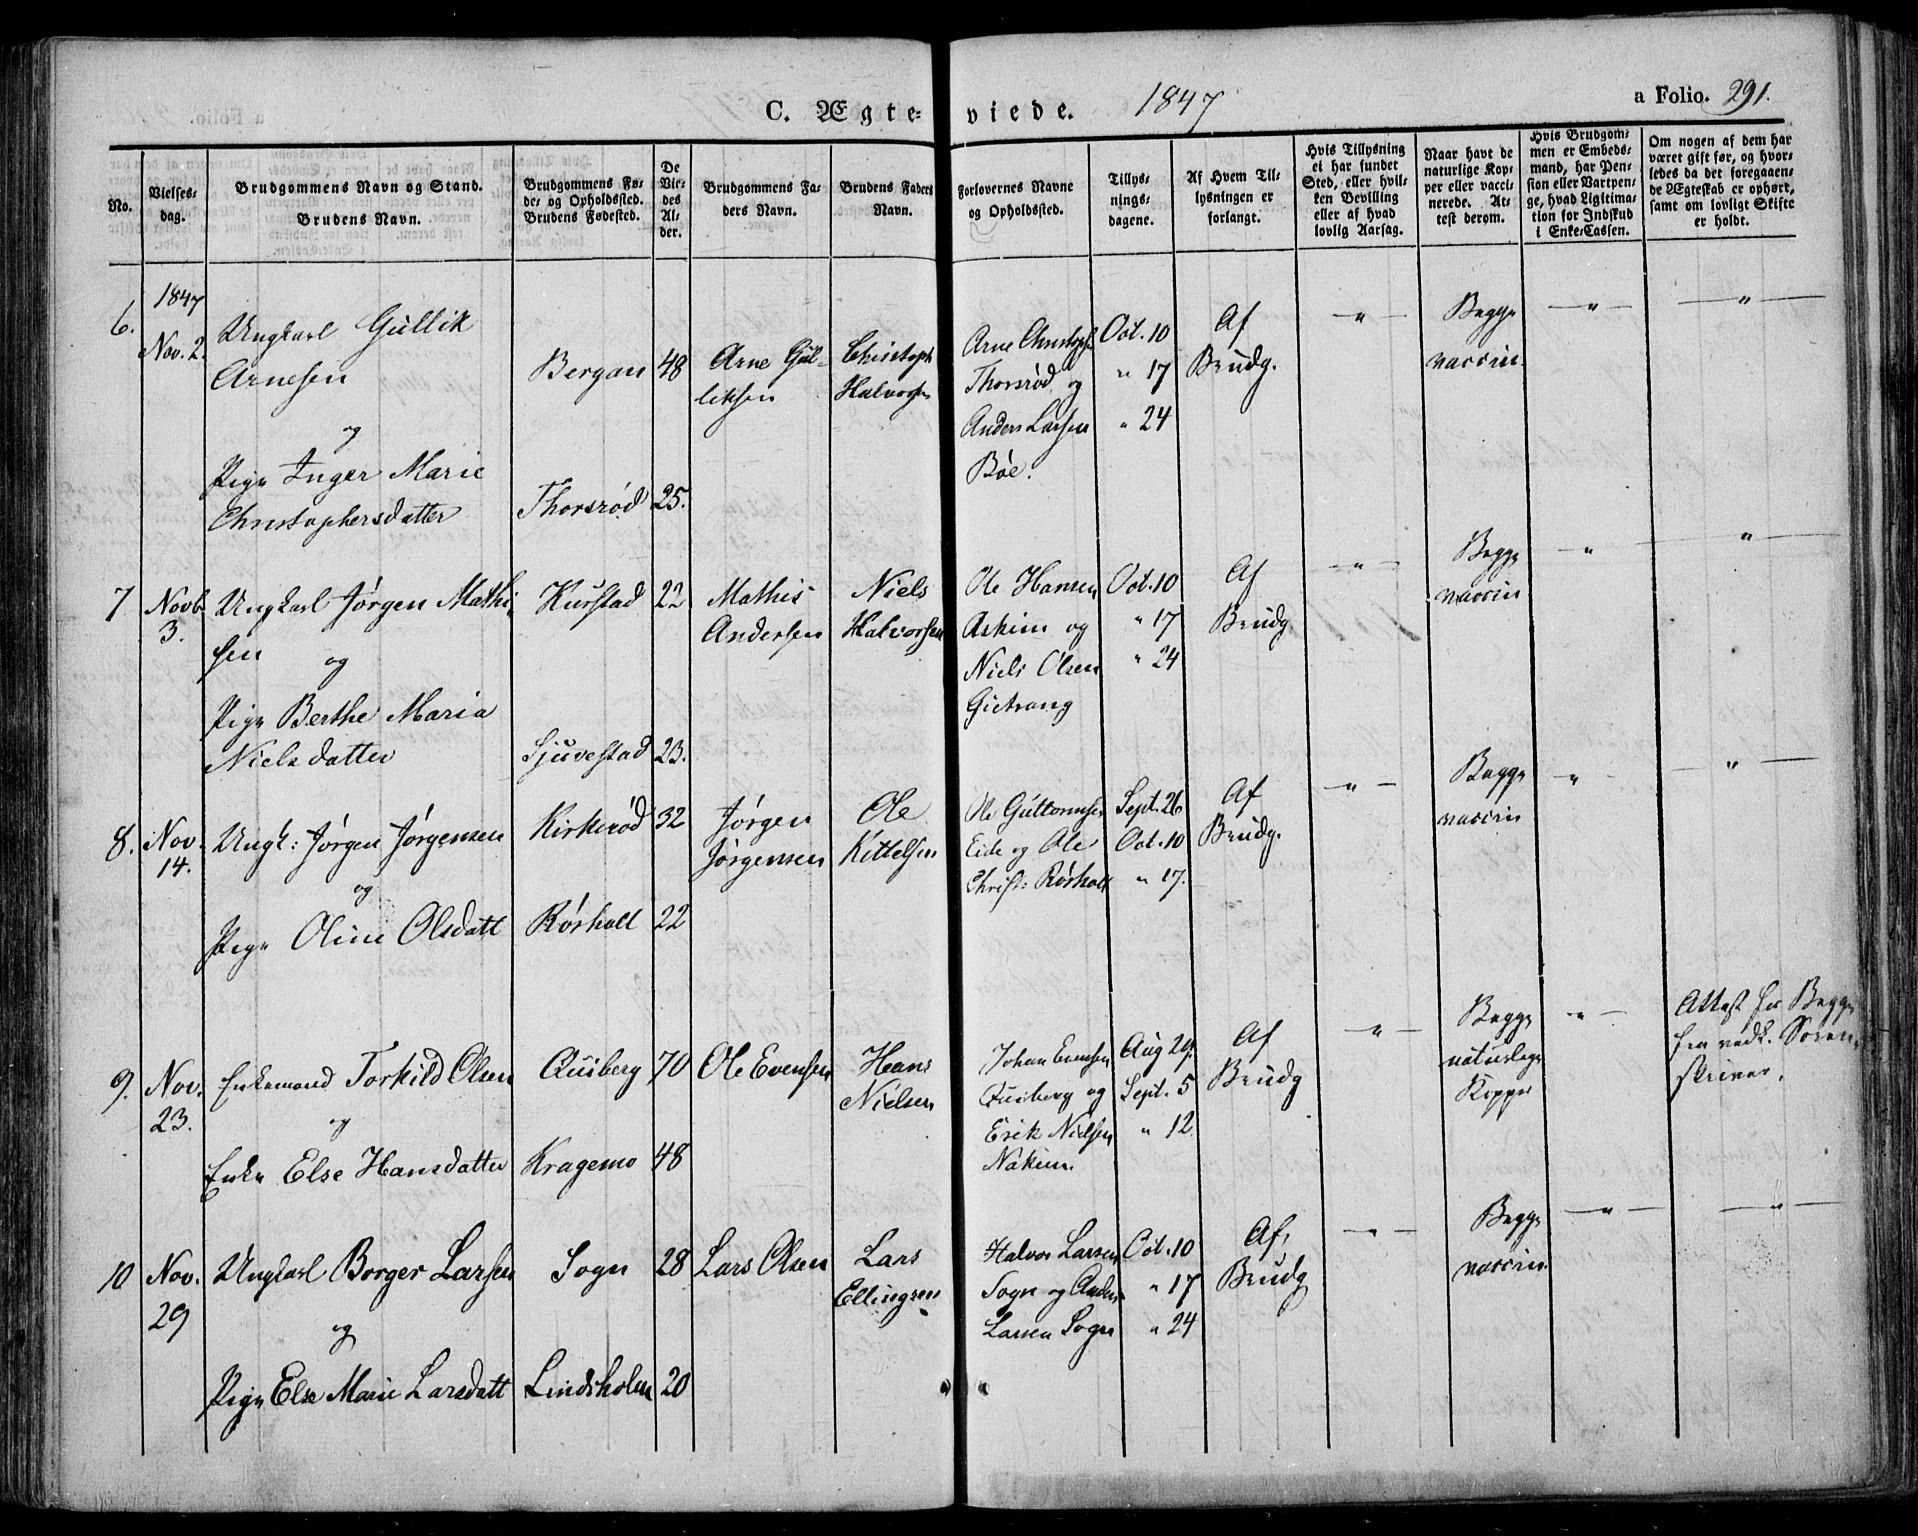 C. Ægteviede. 1847 a Folio. 291.
No.
Vielses-
dag.
Brudgommens Navn og Stand.
Brudens Navn.
Brudgommens Fø-
de- og Opholdssted.
Brudens Fødested.
De
Vie-
des
Al-
der.
Brudgommens Fa-
ders Navn.
Brudens Faders
Navn.
Forlovernes Navne
og Opholdssted.
Tillys-
nings-
dagene.
Af Hvem Til-
lysningen er
forlangt.
Hvis Tillysning
ei har fundet
Sted, eller hvil-
ken Bevilling
eller af hvad
lovlig Aarsag.
Naar havt de
naturlige Kop-
per eller vacci-
nerede. At-
test derom.
Hvis Brudgom-
men er Embeds-
mand, har Pen-
sion eller Vartpen-
ge, hvad Ligitima-
tion for Indskud
i Enke-Cassen.
Om nogen af dem har
været gift før, og hvor-
ledes da det foregaaen-
de Ægteskab er ophørt,
samt om lovligt Skifte
er holdt.
6.
1847
Nov. 2.
Ungkarl Gullik
Arnesen
og
Pige Inger Marie
Christophersdatter
Bergan
Thorsrød
48
25.
Arne Gul-
liksen
Christoph
Halvorsen
Arne Christoph
Thorsrød og
Anders Larsen
Bøe.
Oct. 10
" 17
" 24
Af
Brudg.
"
Begge
vaccin.
"
"
7.
Novb
3.
Ungkarl Jørgen Mathi-
sen og
Pige Berthe Maria
Nielsdatter
Kurstad
Sjuvestad
22
23.
Mathis
Andersen
Niels
Halvorsen
Ole Hansen
Askim og
Niels Olsen
Gietrang
Oct. 10
" 17
" 24
Af
Brudg
"
Begge
vaccin
"
"
8.
Nov.
14.
Ungk: Jørgen Jørgensen
og
Pige Oline Olsdatt
Kirkerød
Rørholt
32
22
Jørgen
Jørgensen
Ole
Kittelsen
Ole Guttormsen
Eide og Ole
Christ: Rørholt
Sept. 26
Oct. 10
" 17.
Af
Brudg.
"
Begge
vaccin
"
"
9.
Nov.
23.
Enkemand Torkild Olsen
og
Enke Else Hansdatter
Quiberg
Kragemo
70
48
Ole Evensen
Hans
Nielsen
Johan Evensen
Quiberg og
Erik Nielsen
Nakim.
Aug 29.
Sept. 5
" 12
Af
Brudg
"
Begge
naturlige
Kopper
"
Attest for Begge
fra vedk. Soren-
skriver.
10
Nov.
29
Ungkarl Borger Larsen
og
Pige Else Marie Larsdatt
Sogn
Lindsholm
28
20
Lars Olsen
Lars
Ellingsen
Halvor Larsen
Sogn og Anders
Larsen Sogn
Oct. 10
" 17
" 24
Af
Brudg
"
Begge
vaccin
"
"